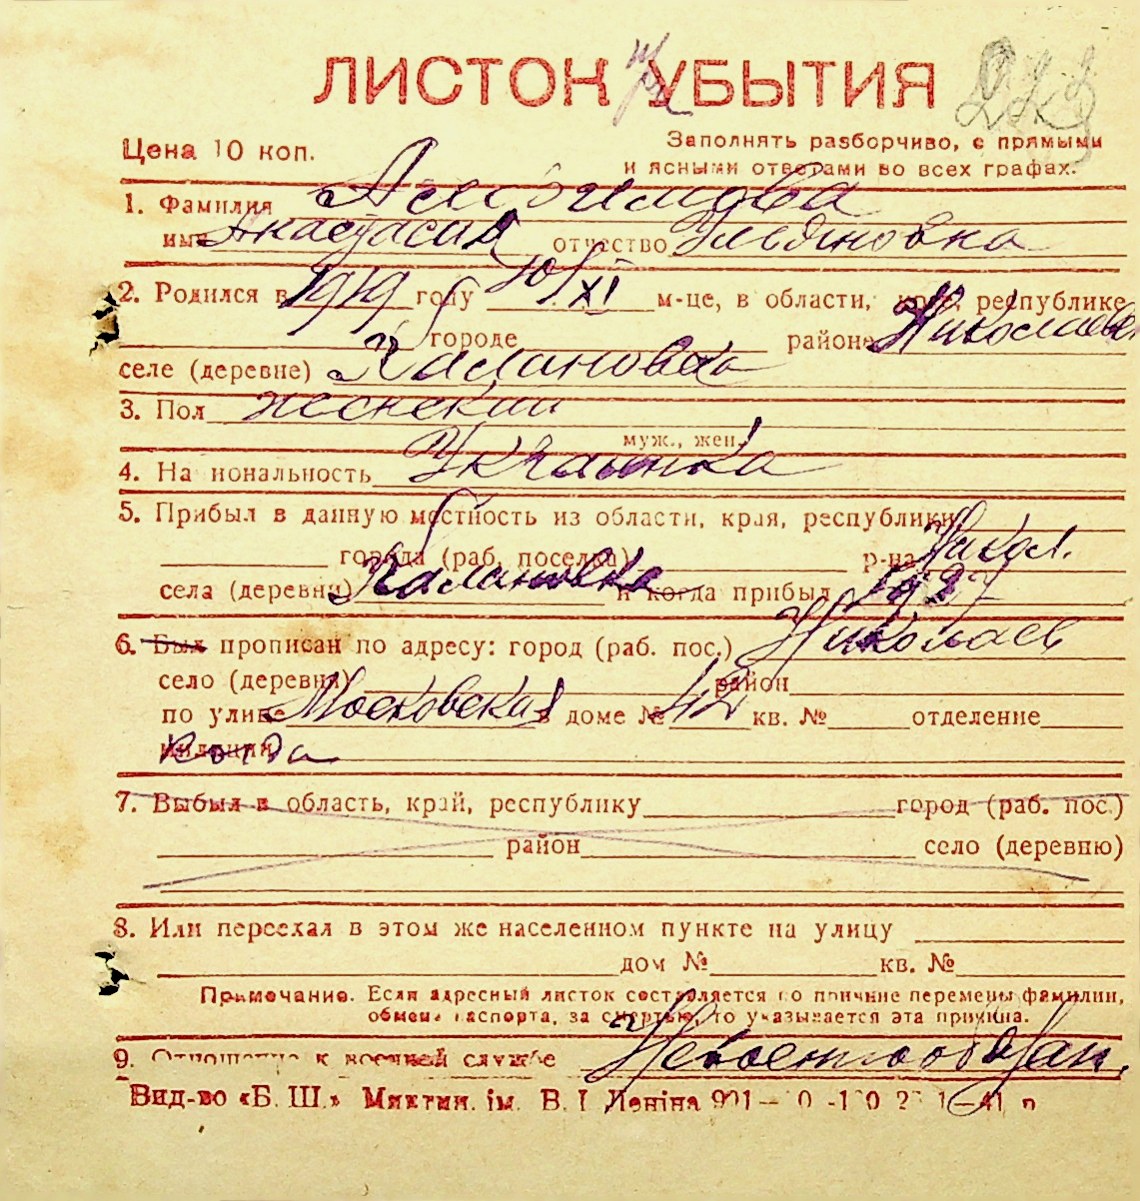 ЛИСТОН УБЫТИЯ
Цена 10 коп.
Заполнять разборчиво, с прямыми
и ясными ответами во всех графах.
1. Фамилия
имя Анастасия отчество Ульяновна
2. Родился в 1919 году 10/XI м-це, в области, крае, республике
городе районе Николаевск
селе (деревне) Калиновка
3. Пол женский
муж., жен.
4. На иональность Украинка
5. Прибыл в данную местность из области, края, республики
города (раб. поселка) р-на Никол.
села (деревни) Калиновка и когда прибыл 1937
6. Был прописан по адресу: город (раб. пос.) Николаев
село (деревня) район
по улице Московская в доме № 42 кв. № отделение
милиции
7. Выбыл в область, край, республику город (раб. пос.)
район село (деревню)
8. Или переехал в этом же населенном пункте на улицу
дом № кв. №
Примечание. Если адресный листок составляется по причине перемены фамилии,
обмена паспорта, за смертью, то указывается эта причина.
9. Отношение к военной службе Невоеннообязан.
Вид-во «Б. Ш.» Миктип. ім. В. І. Леніна